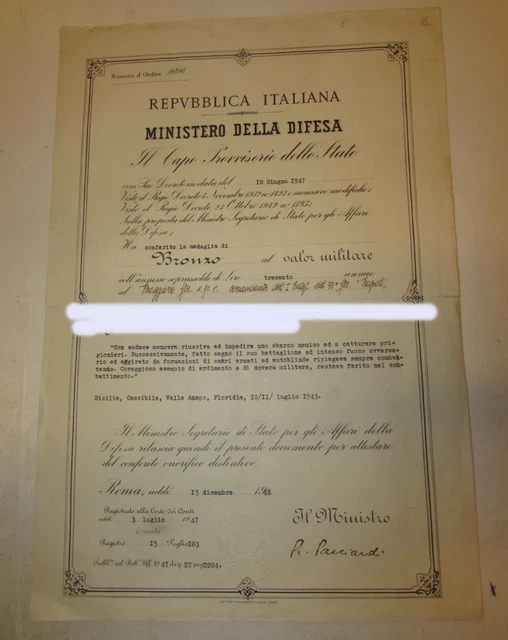 Numero d'Ordine
REPVBBLICA ITALIANA
MINISTERO DELLA DIFESA
Il Capo Provvisorio dello Stato
con Suo Decreto in data del 10 Giugno 1947
Visto il Regio Decreto 4 Novembre 1932 n° 1423 e successive modifiche;
Visto il Regio Decreto 23 Ottobre 1942 n° 1195;
Sulla proposta del Ministro Segretario di Stato per gli Affari
della Difesa;
Ha conferito la medaglia di
Bronzo al valor militare
coll'annesso soprassoldo di Lire trecento annue
al Maggiore ftr. s.p.e. comandante del I Batg. del 75° ftr. Napoli,
"Con audace manovra riusciva ad impedire uno sbarco nemico ed a catturare pri-
gionieri. Successivamente, fatto segno il suo battaglione ad intenso fuoco avversa-
rio ed aggirato da formazioni di carri armati ed autoblinde ripiegava sempre combat-
tendo. Coraggioso esempio di ardimento e di dovere militare, restava ferito nel com-
battimento."
Sicilia, Cassibile, Valle Anapo, Floridia, 10/11/ luglio 1943.
Il Ministro Segretario di Stato per gli Affari della
Difesa rilascia quindi il presente documento per attestare
del conferito onorifico distintivo.
Roma, addì 15 dicembre 1948
Registrato alla Corte dei Conti
addì 1 luglio 1947
Registro 15 Foglio 103
Pubb.to nel Boll. Uff. N° 47 disp 22 pag 2204.
Il Ministro
R. Pacciardi